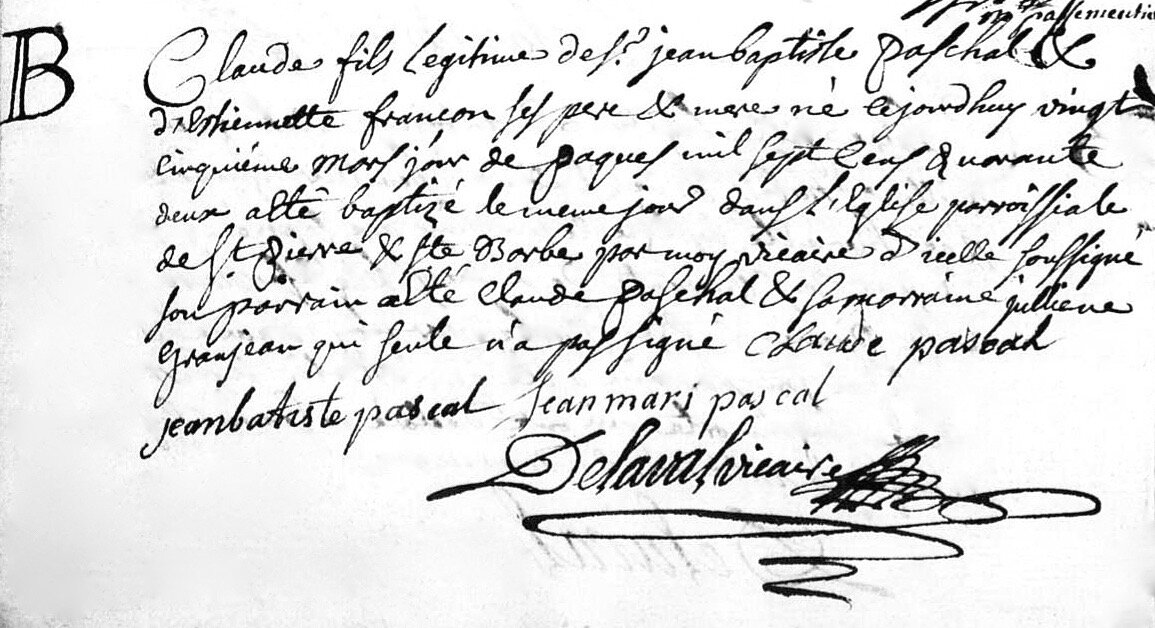 passementier
B
Claude fils legitime de sr. jean baptiste paschal &
d'Estiennette françon ses pere & mere né cejourdhuy vingt
cinquiéme mars jour de paques mil sept cens quarante
deux a été baptizé le meme jour dans L'Eglise parroissiale
de St. pierre & Ste Barbe par moy vicaire d'icelle soussigné
son parrain a été Claude paschal & sa marraine jullienne
Granjean qui seule n'a pas signé Claude pascal
jeanbatiste pascal Jean mari pascal
Delaval vicaire